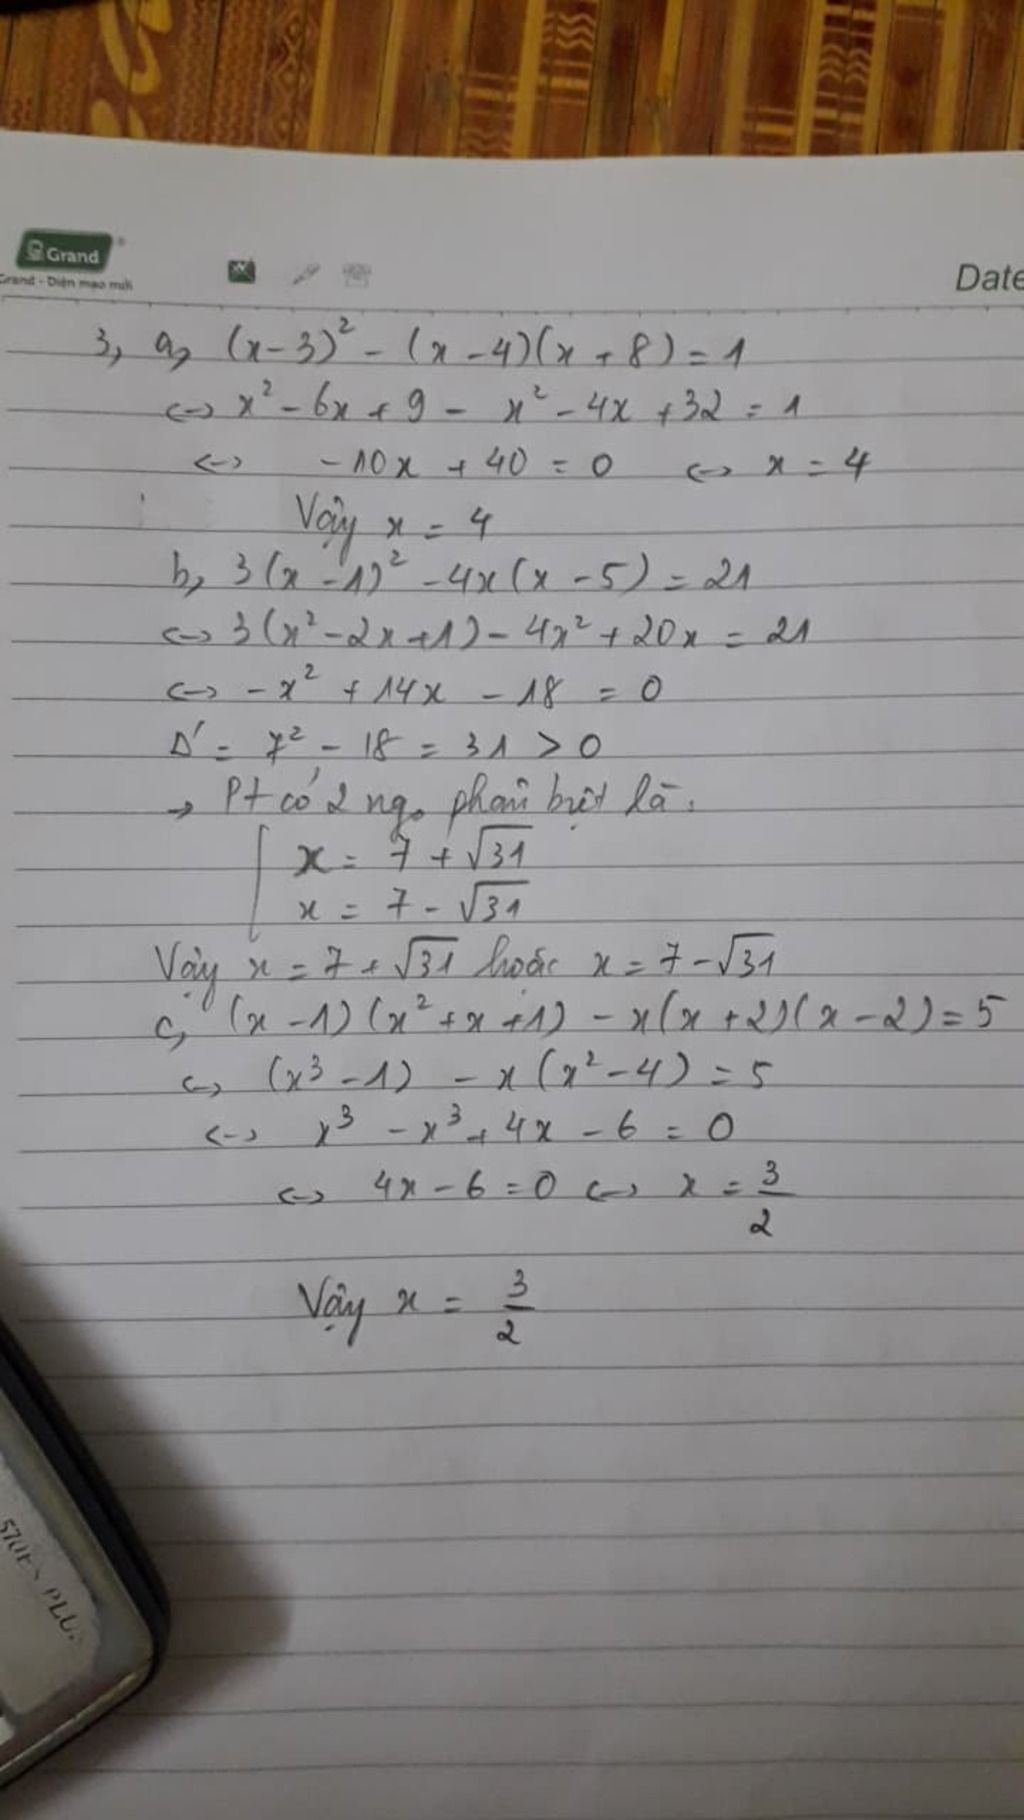 Grand
Grand - Diện mạo mới
Date
3, a, (x-3)² - (x-4)(x+8) = 1
<-> x² - 6x + 9 - x² - 4x + 32 = 1
<-> -10x + 40 = 0 <-> x = 4
Vậy x = 4
b, 3(x-1)² - 4x(x-5) = 21
<-> 3(x² - 2x + 1) - 4x² + 20x = 21
<-> -x² + 14x - 18 = 0
Δ' = 7² - 18 = 31 > 0
-> Pt có 2 ng₀ phân biệt là:
x = 7 + √31
x = 7 - √31
Vậy x = 7 + √31 hoặc x = 7 - √31
c, (x-1)(x²+x+1) - x(x+2)(x-2) = 5
<-> (x³-1) - x(x²-4) = 5
<-> x³ - x³ + 4x - 6 = 0
<-> 4x - 6 = 0 <-> x = 3/2
Vậy x = 3/2
PLUS